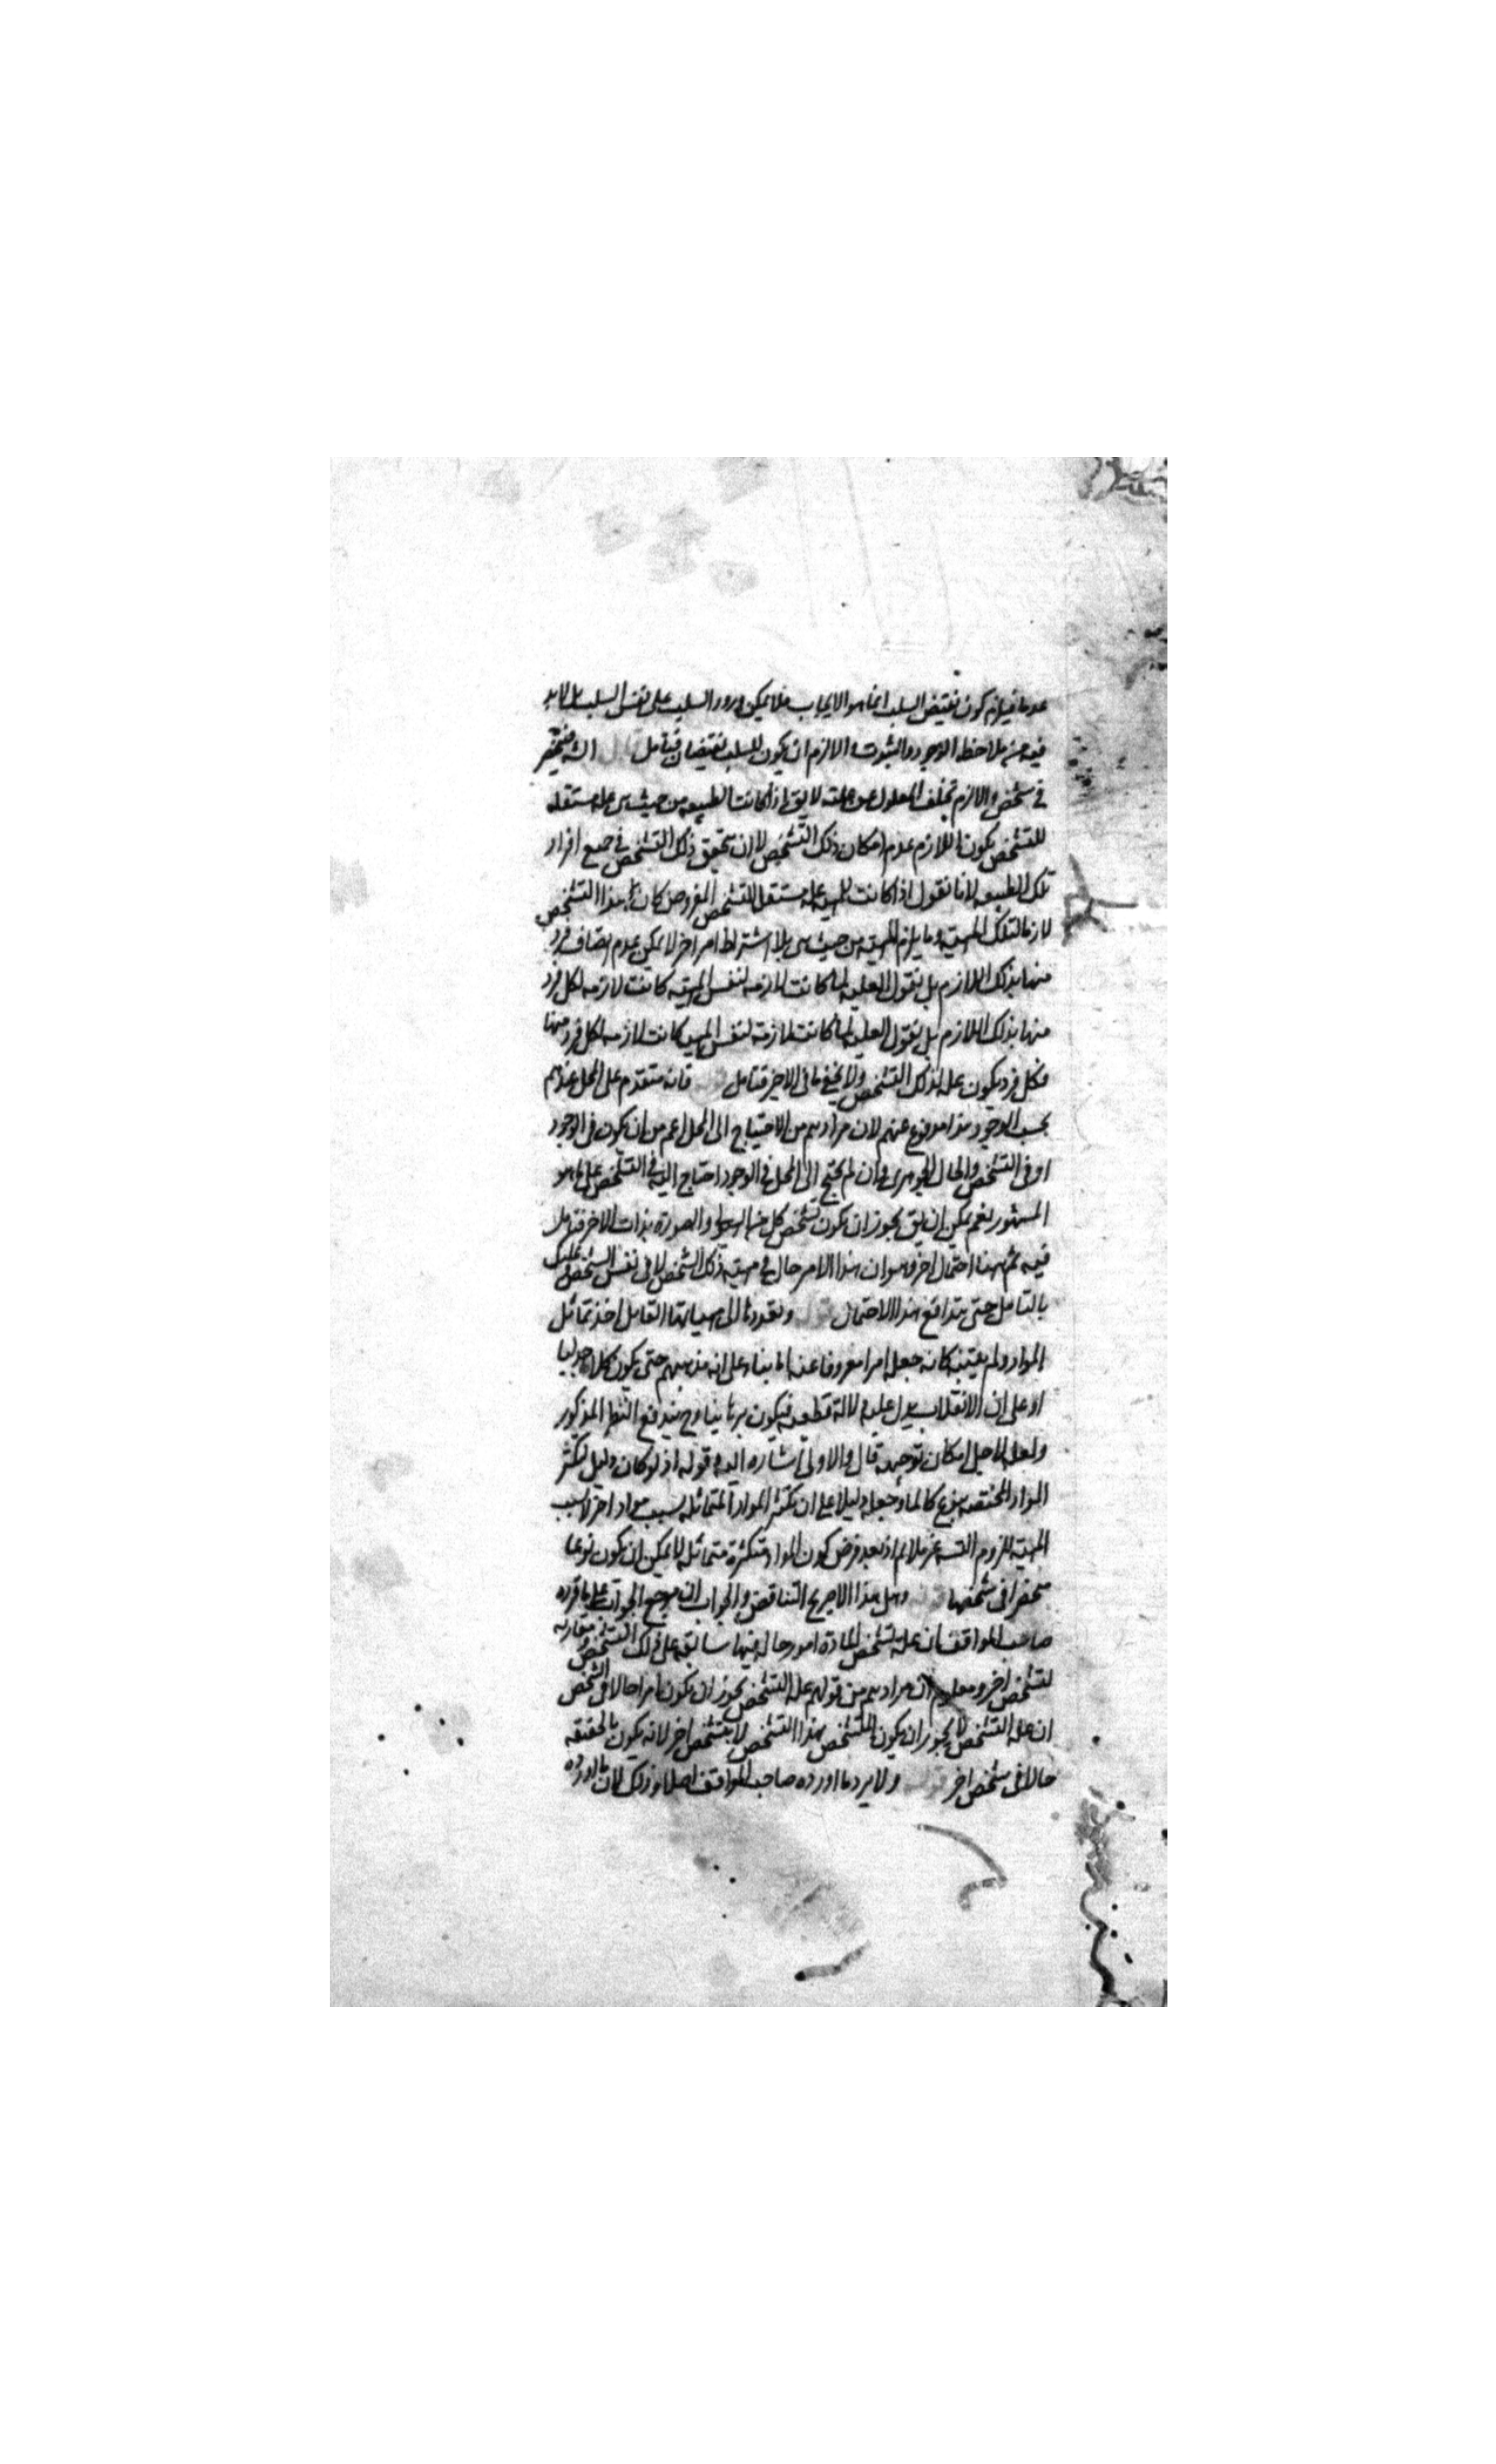 عدما فيلزم كون نقيض السلب انما هو الايجاب فلا يمكن ورود السلب على نفس السلب بل لا بد
فيه من ملاحظ الوجود والثبوت والا لزم ان يكون للسلب نقيضان فتامل قال انه منحصر
في شخص والا لزم تخلف المعلول عن علته لا يق اذا كانت الطبيعه من حيث هى عله مستقله
للتشخص يكون اللازم عدم امكان ذلك التشخص لا ان يتحقق ذلك التشخص في جميع افراد
تلك الطبيعه لانا نقول اذا كانت المهيه عله مستقله للتشخص المفروض كان هذا التشخص
لازما لتلك المهية وما يلزم المهية من حيث هى بلا اشتراط امر اخر لا يمكن عدم اتصاف فرد
منها بذلك اللازم بل نقول العليه لما كانت لازمه لنفس المهيه كانت لازمه لكل فرد
منها بذلك اللازم بل نقول العليه لما كانت لازمة لنفس المهيه كانت لازمه لكل فرد منها
فكل فرد يكون عله لذلك التشخص ولا يخفى ما فى الاخير فتامل فانه متقدم على المحل عندهم
بحسب الوجود هذا مدفوع عنهم لان مرادهم من الاحتياج الى المحل اعم من ان يكون فى الوجود
او فى التشخص والحال الجوهرى وان لم يحتج الى المحل في الوجود احتاج اليه في التشخص على ما هو
المشهور نعم يمكن ان يق يجوز ان يكون تشخص كل من الهيولى والصورة بذات الاخر فتامل
فيه ثم ههنا احتمال اخر وهو ان هذا الامر حال في مهية ذلك الشخص لا فى نفس الشخص فعليك
بالتامل حتى يتدافع هذا الاحتمال وتعددها الى مهياتها القابل اخذ تماثل
المواد ولم يثبته كانه جعل امرا مفروغا عنه اما بناء على انه مذهبهم حتى يكون كلاما جدليا
او على ان الانقلاب يدل عليه دلالة قطعيه فيكون برهانيا وح يندفع النظر المذكور
ولعله لاجل امكان توجيهه قال والاولى اشاره اليه وقوله اذ لو كان دليل لتكثر
المواد المختصه بنوع كالماء وجعله دليلا على ان تكثر المواد المتماثله بسبب مواد اخر لا بسبب
المهية للزوم التسه غير ملايم اذ بعد فرض كون المواد متكثرة متماثله لا يمكن ان يكون نوعا
منحصرا فى شخصها وهل هذا الا صريح التناقض والجواب ان مرجع الجواب على ما قرره
صاحب المواقف ان عله تشخص المادة امور حاله فيها سابقه على ذلك التشخص ومقارنه
لتشخص اخر ومعلوم ان مرادهم من قولهم عله التشخص يجوز ان يكون امرا حالا فى الشخص
ان عله التشخص لا يجوز ان يكون للتشخص بهذا التشخص لا بتشخص اخر لانه يكون بالحقيقه
حالا فى شخص اخر ولا يرد ما اورده صاحب المواقف اصلا وذلك لان ما اورده